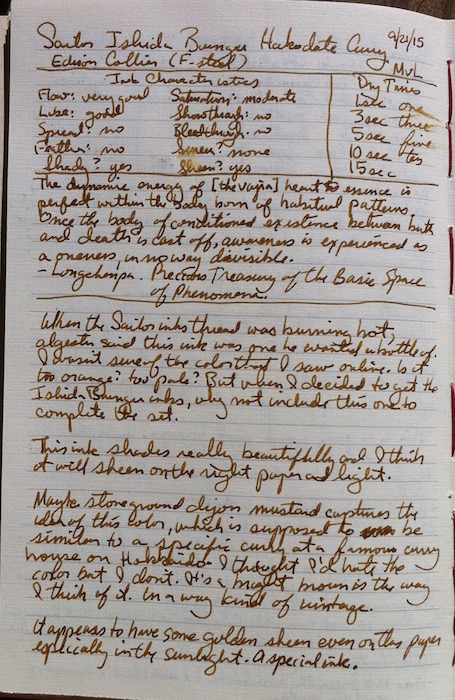 Sailor Ishida Bungu Hakodate Curry 9/21/15
Edison Collier (F-steel) MvL
Ink Characteristics Dry Times
Flow: very good Saturation: moderate 1 sec one
Lube: good Showthrough: no 3 sec three
Spread: no Bleedthrough: no 5 sec five
Feather: no Smear? none 10 sec ten
Shady? yes Sheen? yes 15 sec
The dynamic energy of [the vajra] heart essence is
perfect within the body born of habitual patterns
Once the body of conditioned existence between birth
and death is cast off, awareness is experienced as
a oneness, in no way divisible.
- Longchenpa. Precious Treasury of the Basic Space
of Phenomena.
When the Sailor inks thread was burning hot,
said this ink was one he wanted a bottle of.
I wasn't sure of the color that I saw online. Is it
too orange? too pale? But when I decided to get the
Ishida Bungu inks, why not include this one to
complete the set.
This ink shades really beautifully and I think
it will sheen on the right paper and light.
Maybe stoneground dijon mustard captures the
idea of this color, which is supposed to be
similar to a specific curry at a famous curry
house on Hokkaido. I thought I'd hate the
color but I don't. It's a bright brown is the way
I think of it. In a way kind of vintage.
It appears to have some golden sheen even on this paper
especially in the sunlight. A special ink.